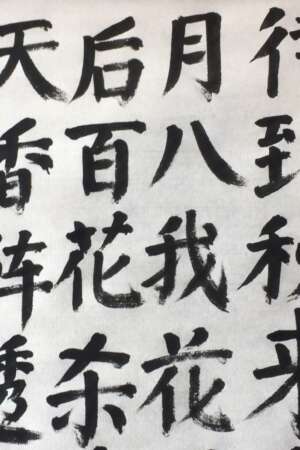 待到秋来
月八我花
后百花杀
天香阵透